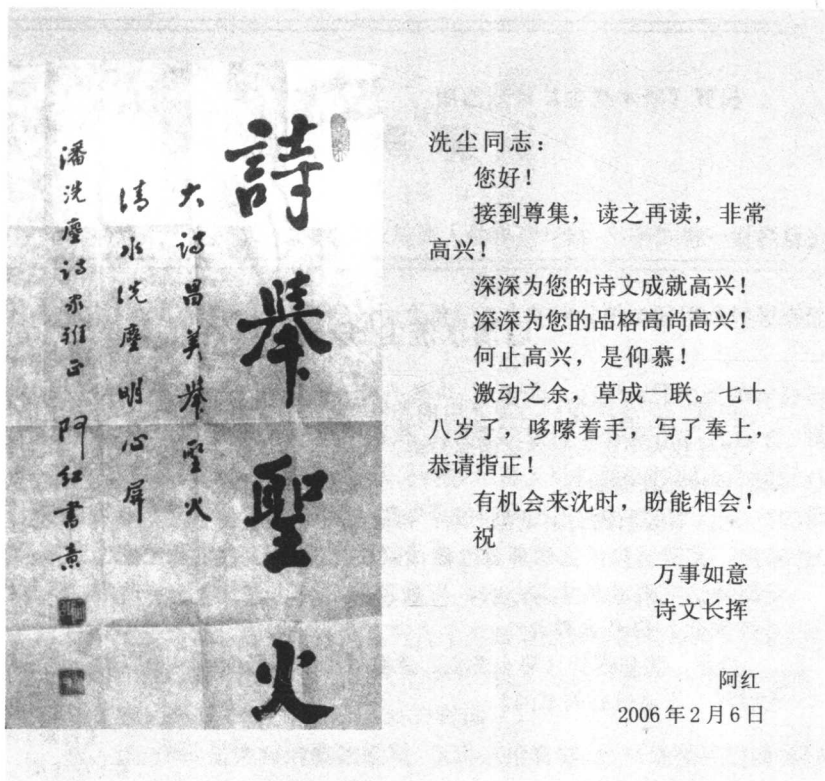 詩舉聖火
大诗昌美举聖火
清水洗塵明心屏
潘洗塵诗家雅正 阿红書意
洗尘同志：
您好！
接到尊集，读之再读，非常
高兴！
深深为您的诗文成就高兴！
深深为您的品格高尚高兴！
何止高兴，是仰慕！
激动之余，草成一联。七十
八岁了，哆嗦着手，写了奉上，
恭请指正！
有机会来沈时，盼能相会！
祝
万事如意
诗文长挥
阿红
2006年2月6日